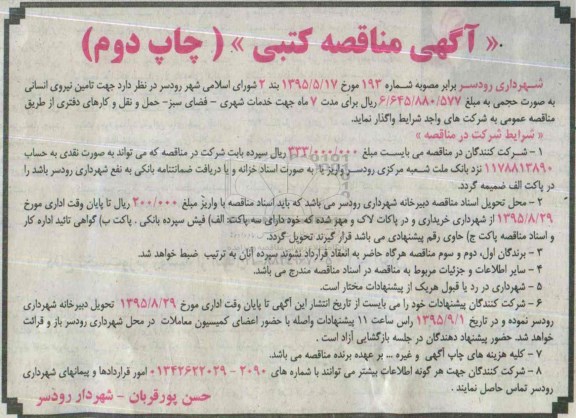 « آگهی مناقصه کتبی » ( چاپ دوم)
شهرداری رودسر برابر مصوبه شماره ۱۹۳ مورخ ۱۳۹۵/۵/۱۷ بند ۲ شورای اسلامی شهر رودسر در نظر دارد جهت تامین نیروی انسانی
به صورت حجمی به مبلغ ۶/۶۴۵/۸۸۰/۵۷۷ ریال برای مدت ۷ ماه جهت خدمات شهری - فضای سبز- حمل و نقل و کارهای دفتری از طریق
مناقصه عمومی به شرکت های واجد شرایط واگذار نماید.
« شرایط شرکت در مناقصه »
۱ – شرکت کنندگان در مناقصه می بایست مبلغ ۳۳۳/۰۰۰/۰۰۰ ریال سپرده بابت شرکت در مناقصه که می تواند به صورت نقدی به حساب
۱۱۷۸۸۱۳۸۹۰ نزد بانک ملت شعبه مرکزی رودسر واریز یا به صورت اسناد خزانه و یا دریافت ضمانتنامه بانکی به نفع شهرداری رودسر باشد را
در پاکت الف ضمیمه گردد.
۲ – محل تحویل اسناد مناقصه دبیرخانه شهرداری رودسر می باشد که باید اسناد مناقصه با واریز مبلغ ۳۰۰/۰۰۰ ریال تا پایان وقت اداری مورخ
۱۳۹۵/۸/۲۹ از شهرداری خریداری و در پاکات لاک و مهر شده که خود دارای سه پاکت: الف) فیش سپرده بانکی . پاکت ب) گواهی تائید اداره کار
و اسناد مناقصه پاکت ج) حاوی رقم پیشنهادی می باشد قرار گیرند تحویل گردد.
۳ – برندگان اول، دوم و سوم مناقصه هرگاه حاضر به انعقاد قرارداد نشوند سپرده آنان به ترتیب ضبط خواهد شد.
۴ – سایر اطلاعات و جزئیات مربوط به مناقصه در اسناد مناقصه مندرج می باشد.
۵ – شهرداری در رد یا قبول هریک از پیشنهادات مختار است.
۶ – شرکت کنندگان پیشنهادات خود را می بایست از تاریخ انتشار این آگهی تا پایان وقت اداری مورخ ۱۳۹۵/۸/۲۹ تحویل دبیرخانه شهرداری
رودسر نموده و در تاریخ ۱۳۹۵/۹/۱ راس ساعت ۱۱ پیشنهادات واصله با حضور اعضای کمیسیون معاملات در محل شهرداری رودسر باز و قرائت
خواهد شد. حضور پیشنهاد دهندگان در جلسه بازگشایی آزاد است .
۷ – کلیه هزینه های چاپ آگهی و غیره ... بر عهده برنده مناقصه می باشد.
۸ – شرکت کنندگان جهت هر گونه اطلاعات بیشتر می توانند با شماره های ۲۰۹۰ - ۰۱۳۴۲۶۲۲۰۲۹ امور قراردادها و پیمانهای شهرداری
رودسر تماس حاصل نمایند .
حسن پورقربان – شهردار رودسر